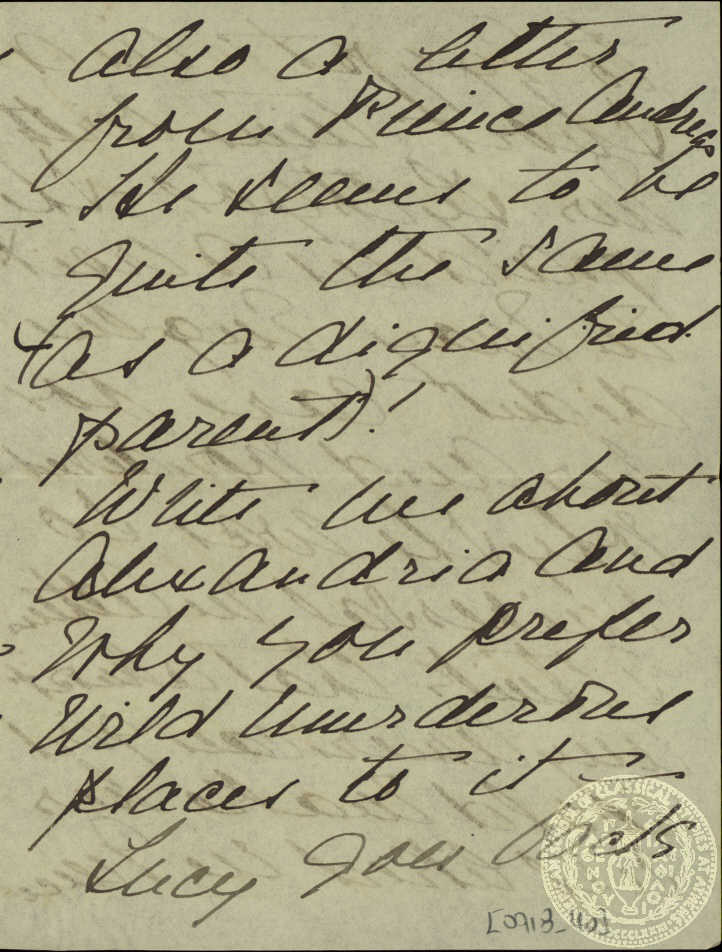 also a letter
from Prince Andreas
He seems to be
quite the same
(as a dignified
parent)!
Write me about
Alexandria and
why you prefer
wild murderous
places to it –
Lucy joins